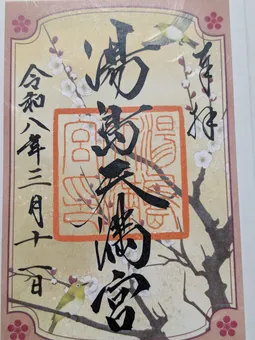 奉拝
湯島天満宮
令和八年二月十一日